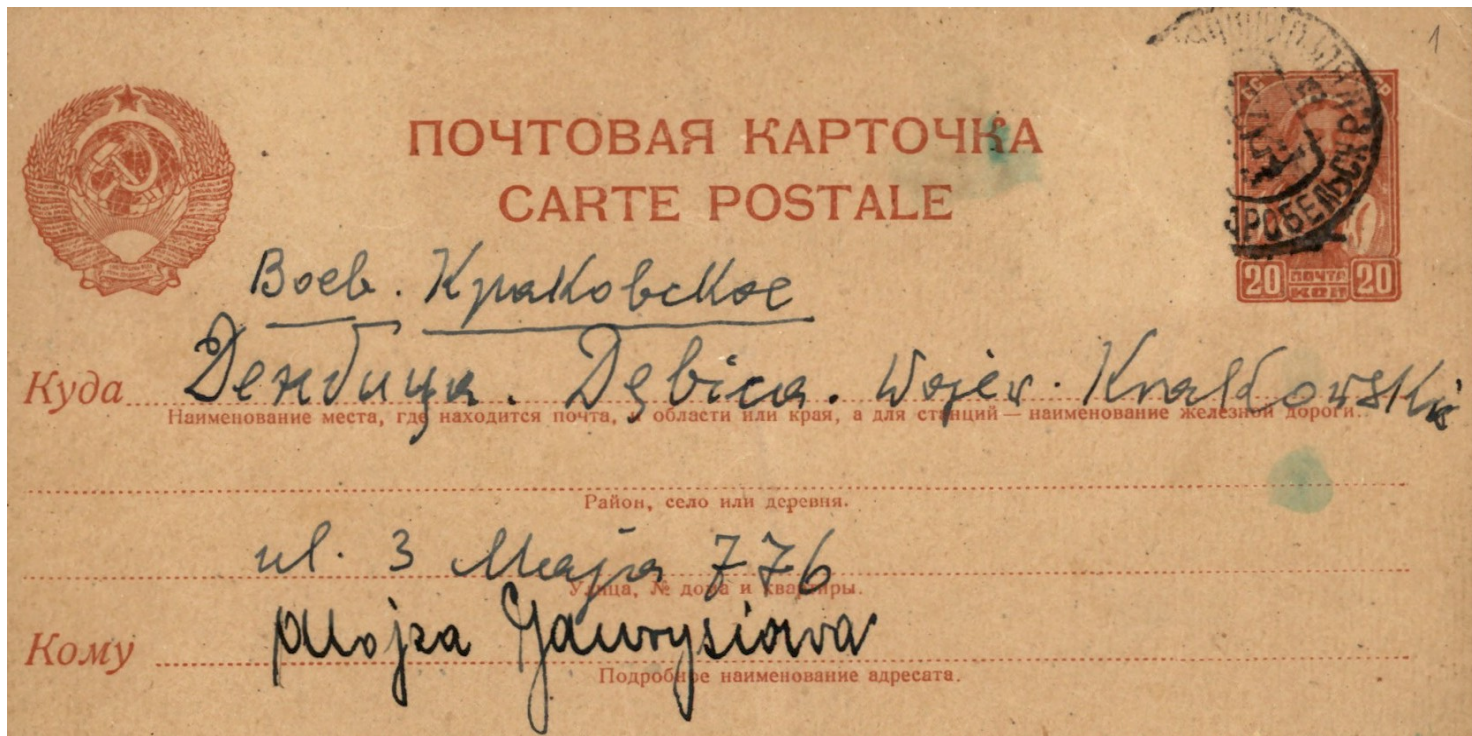 1
ПОЧТОВАЯ КАРТОЧКА
CARTE POSTALE
20 ПОЧТА КОП 20
Воев. Краковское
Куда Дембица. Dębica. Wojew. Krakowskie
Наименование места, где находится почта, и области или края, а для станций — наименование железной дороги.
Район, село или деревня.
ul. 3 Maja 776
Улица, № дома и квартиры.
Кому Alojza Gawrysiowa
Подробное наименование адресата.